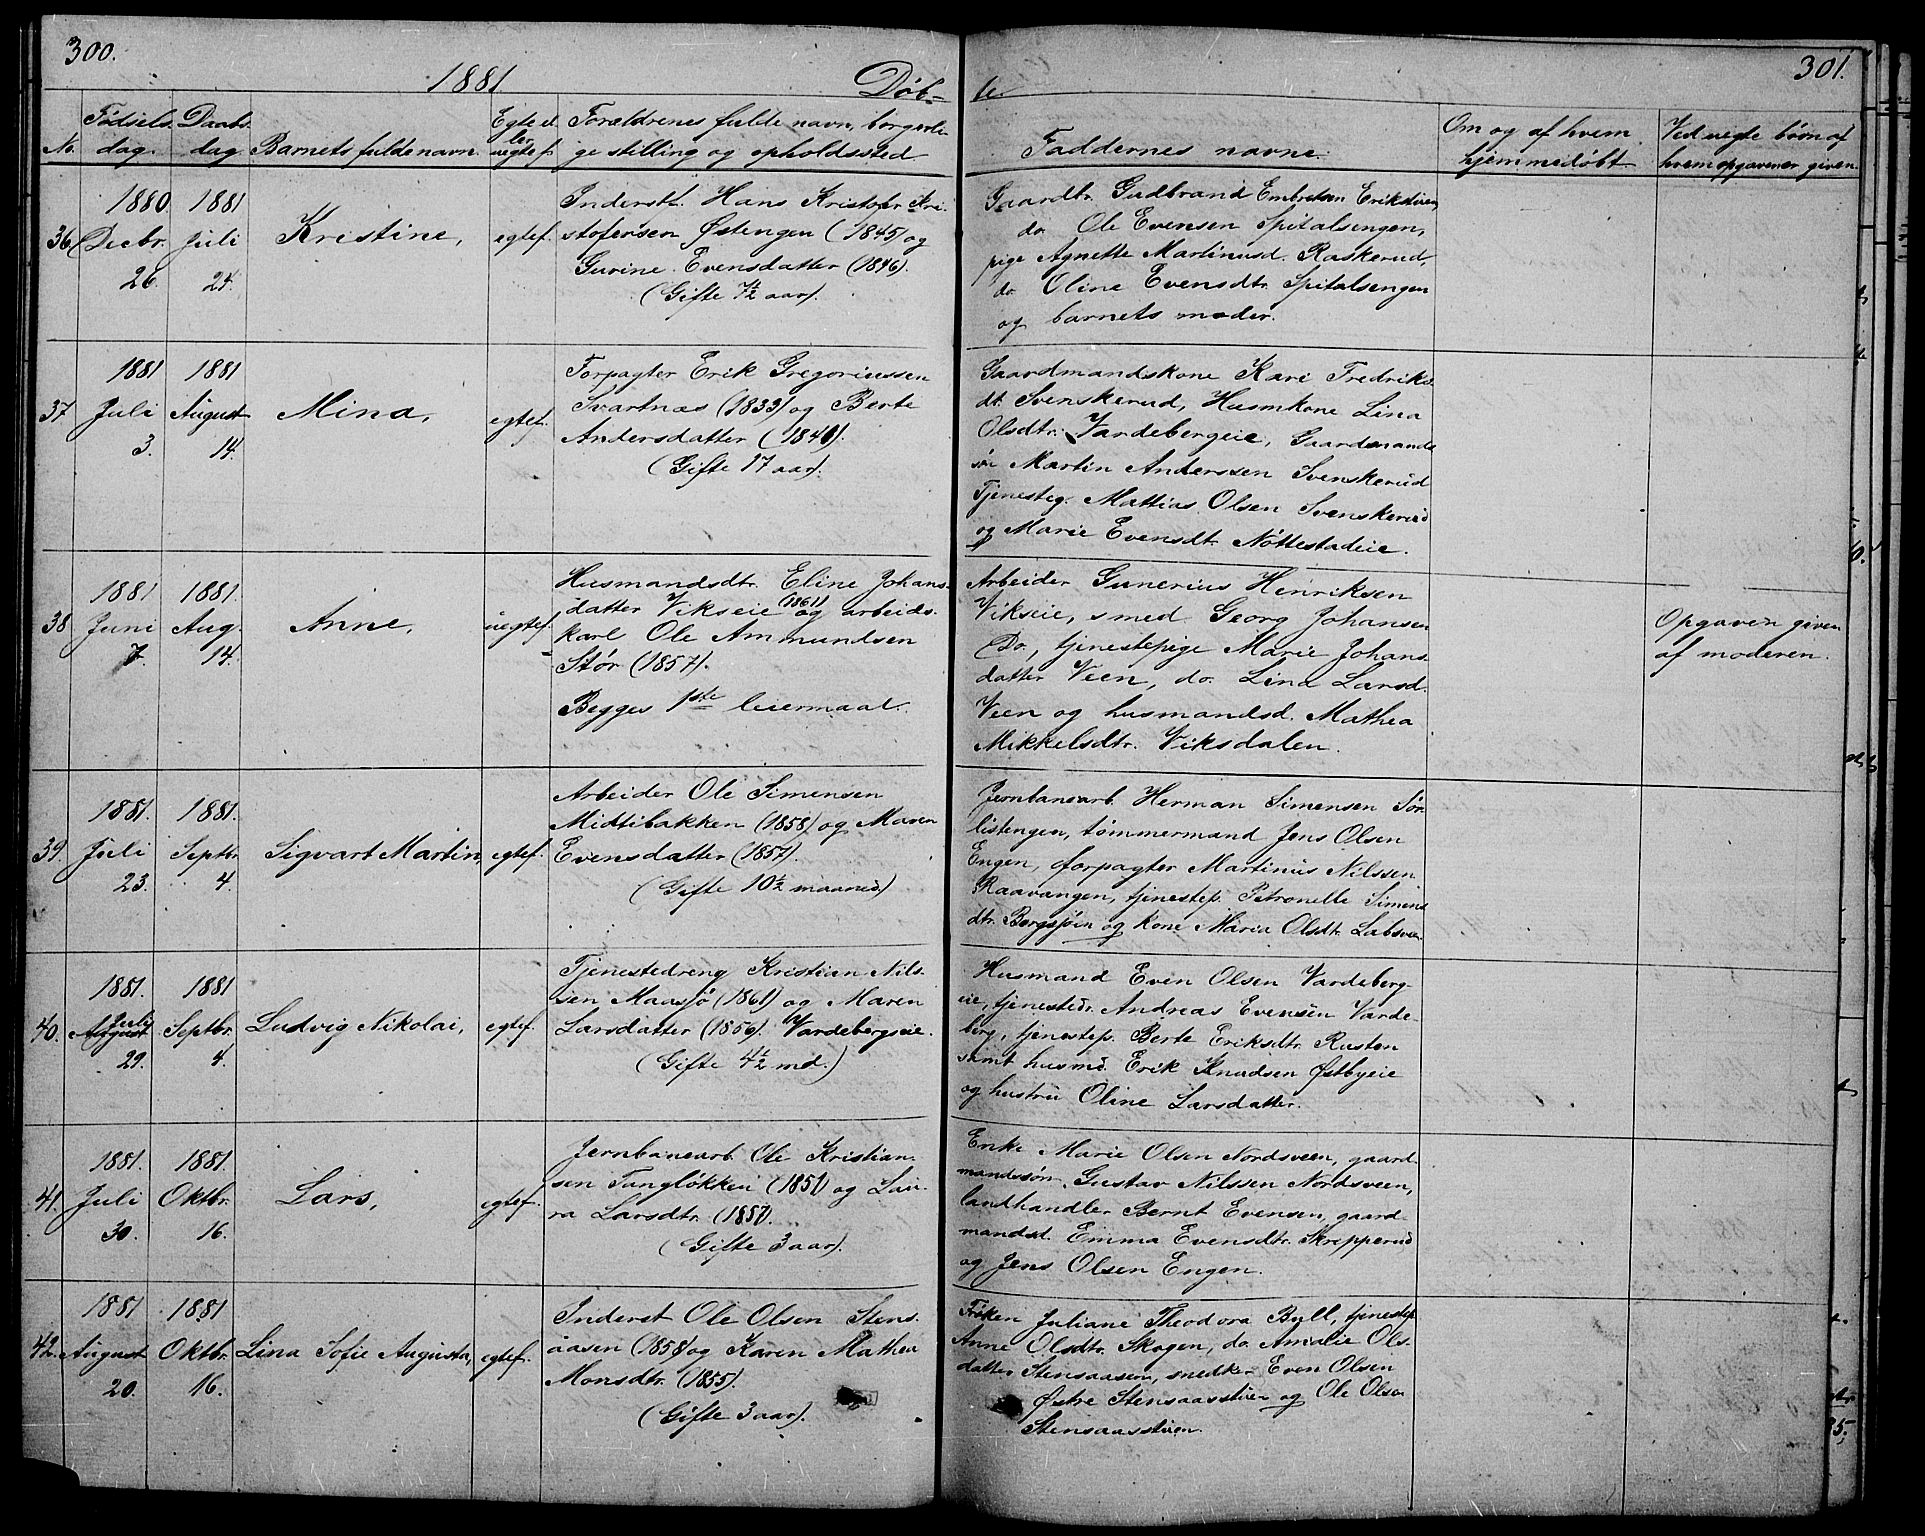 300.
1881
Døb-
No.
Fødsels
dag.
Daabs
dag
Barnets fulde navn.
Egte el.
uegtef.
Forældrenes fulde navn, borgerli-
ge stilling og opholdssted
36
1880.
Decbr.
26.
1881
Juli
24.
Kristine,
egtef.
Inderst. Hans Kristofer Kri-
stofersen Østengen (1845) og
Gurine Evensdatter (1846).
(Gifte 7½ aar).
37
1881
Juli
3.
1881
August
14.
Mina,
egtef.
Forpagter Erik Gregoriussen
Svartnas (1833) og Berte
Andersdatter (1840).
(Gifte 17 aar).
38
1881
Juni
7.
1881.
Aug.
14.
Anne,
uegtef.
Husmandsdtr. Eline Johans-
datter Vikseie (1861) og arbeids-
karl Ole Ammundsen
Stør (1857).
Begges 1ste leiermaal.
39.
1881.
Juli
23.
1881.
Septbr.
4.
Sigvart Martin,
egtef.
Arbeider Ole Simensen
Midtibakken (1858) og Maren
Evensdatter (1857).
(Gifte 10½ maaned)
40.
1881.
Juli
August
29.
1881
Septbr.
4.
Ludvig Nikolai,
egtef.
Tjenestedreng Kristian Nils-
sen Maasjø (1861) og Maren
Larsdatter (1856). Vardebergseie.
(Gifte 4½ md.)
41.
1881.
Juli
30.
1881.
Oktbr.
16.
Lars,
egtef.
Jernbanearb. Ole Kristian-
sen Tangløkken (1851) og Lau-
ra Larsdtr. (1857).
(Gifte 3 aar).
42.
1881
August
20.
1881
Oktbr.
16.
Lina Sofie Augusta,
egtef.
Inderst Ole Olsen Stens-
aasen (1858) og Karen Mathea
Monsdtr. (1855).
(Gifte 3 aar).
301.
te.
Faddernes navne.
Om og af hvem
hjemmedøbt
Ved uegte børn af
hvem opgaven er given
Gaardbr. Gudbrand Embretsen Erikstuen,
do. Ole Evensen Spitalsengen,
pige Agnette Martinusd. Raskerud,
do. Oline Evensdtr. Spitalsengen
og barnets moder.
Gaardmandskone Kari Fredriks-
dt. Svenskerud, Husmkone Lina
Olsdtr. Vardebergeie, Gaardmands-
søn Martin Anderssen Svenskerud
Tjenesteg. Mattias Olsen Svenskerud
og Marie Evensdt. Nøttestadeie.
Arbeider Gunerius Henriksen
Vikseie, smed Georg Johansen
Do., tjenestepige Marie Johans-
datter Veen, do. Lina Larsd.
Veen og husmandsd. Mathea
Mikkelsdtr. Viksdalen.
Opgaven given
af moderen.
Jernbanearb. Herman Simensen Sør-
listengen, tømmermand Jens Olsen
Engen, forpagter Martinus Nilssen
Raavangen, tjenestep. Petronelle Simens
dtr. Bergsjøen og kone Maria Olsdtr. Labsveen.
Husmand Even Olsen Vardeberg-
eie, tjenestedr. Andreas Evensen Varde-
berg, tjenestep. Berte Eriksdtr. Rusten
samt husmd. Erik Knudsen Østbyeie
og hustru Oline Larsdatter.
Enke Marie Olsen Nordsveen, gaard-
mandssøn Gustav Nilssen Nordsveen,
landhandler Bernt Evensen, gaard-
mandsd. Emma Evensdtr. Skrepperud
og Jens Olsen Engen.
Frøken Juliane Theodora Byll, tjenestep.
Anne Olsdtr. Skogen, do. Amalie Ols-
datter Stensaasen, snedker Even Olsen
Østre Stensaasstuen og Ole Olsen
Stensaasstuen.